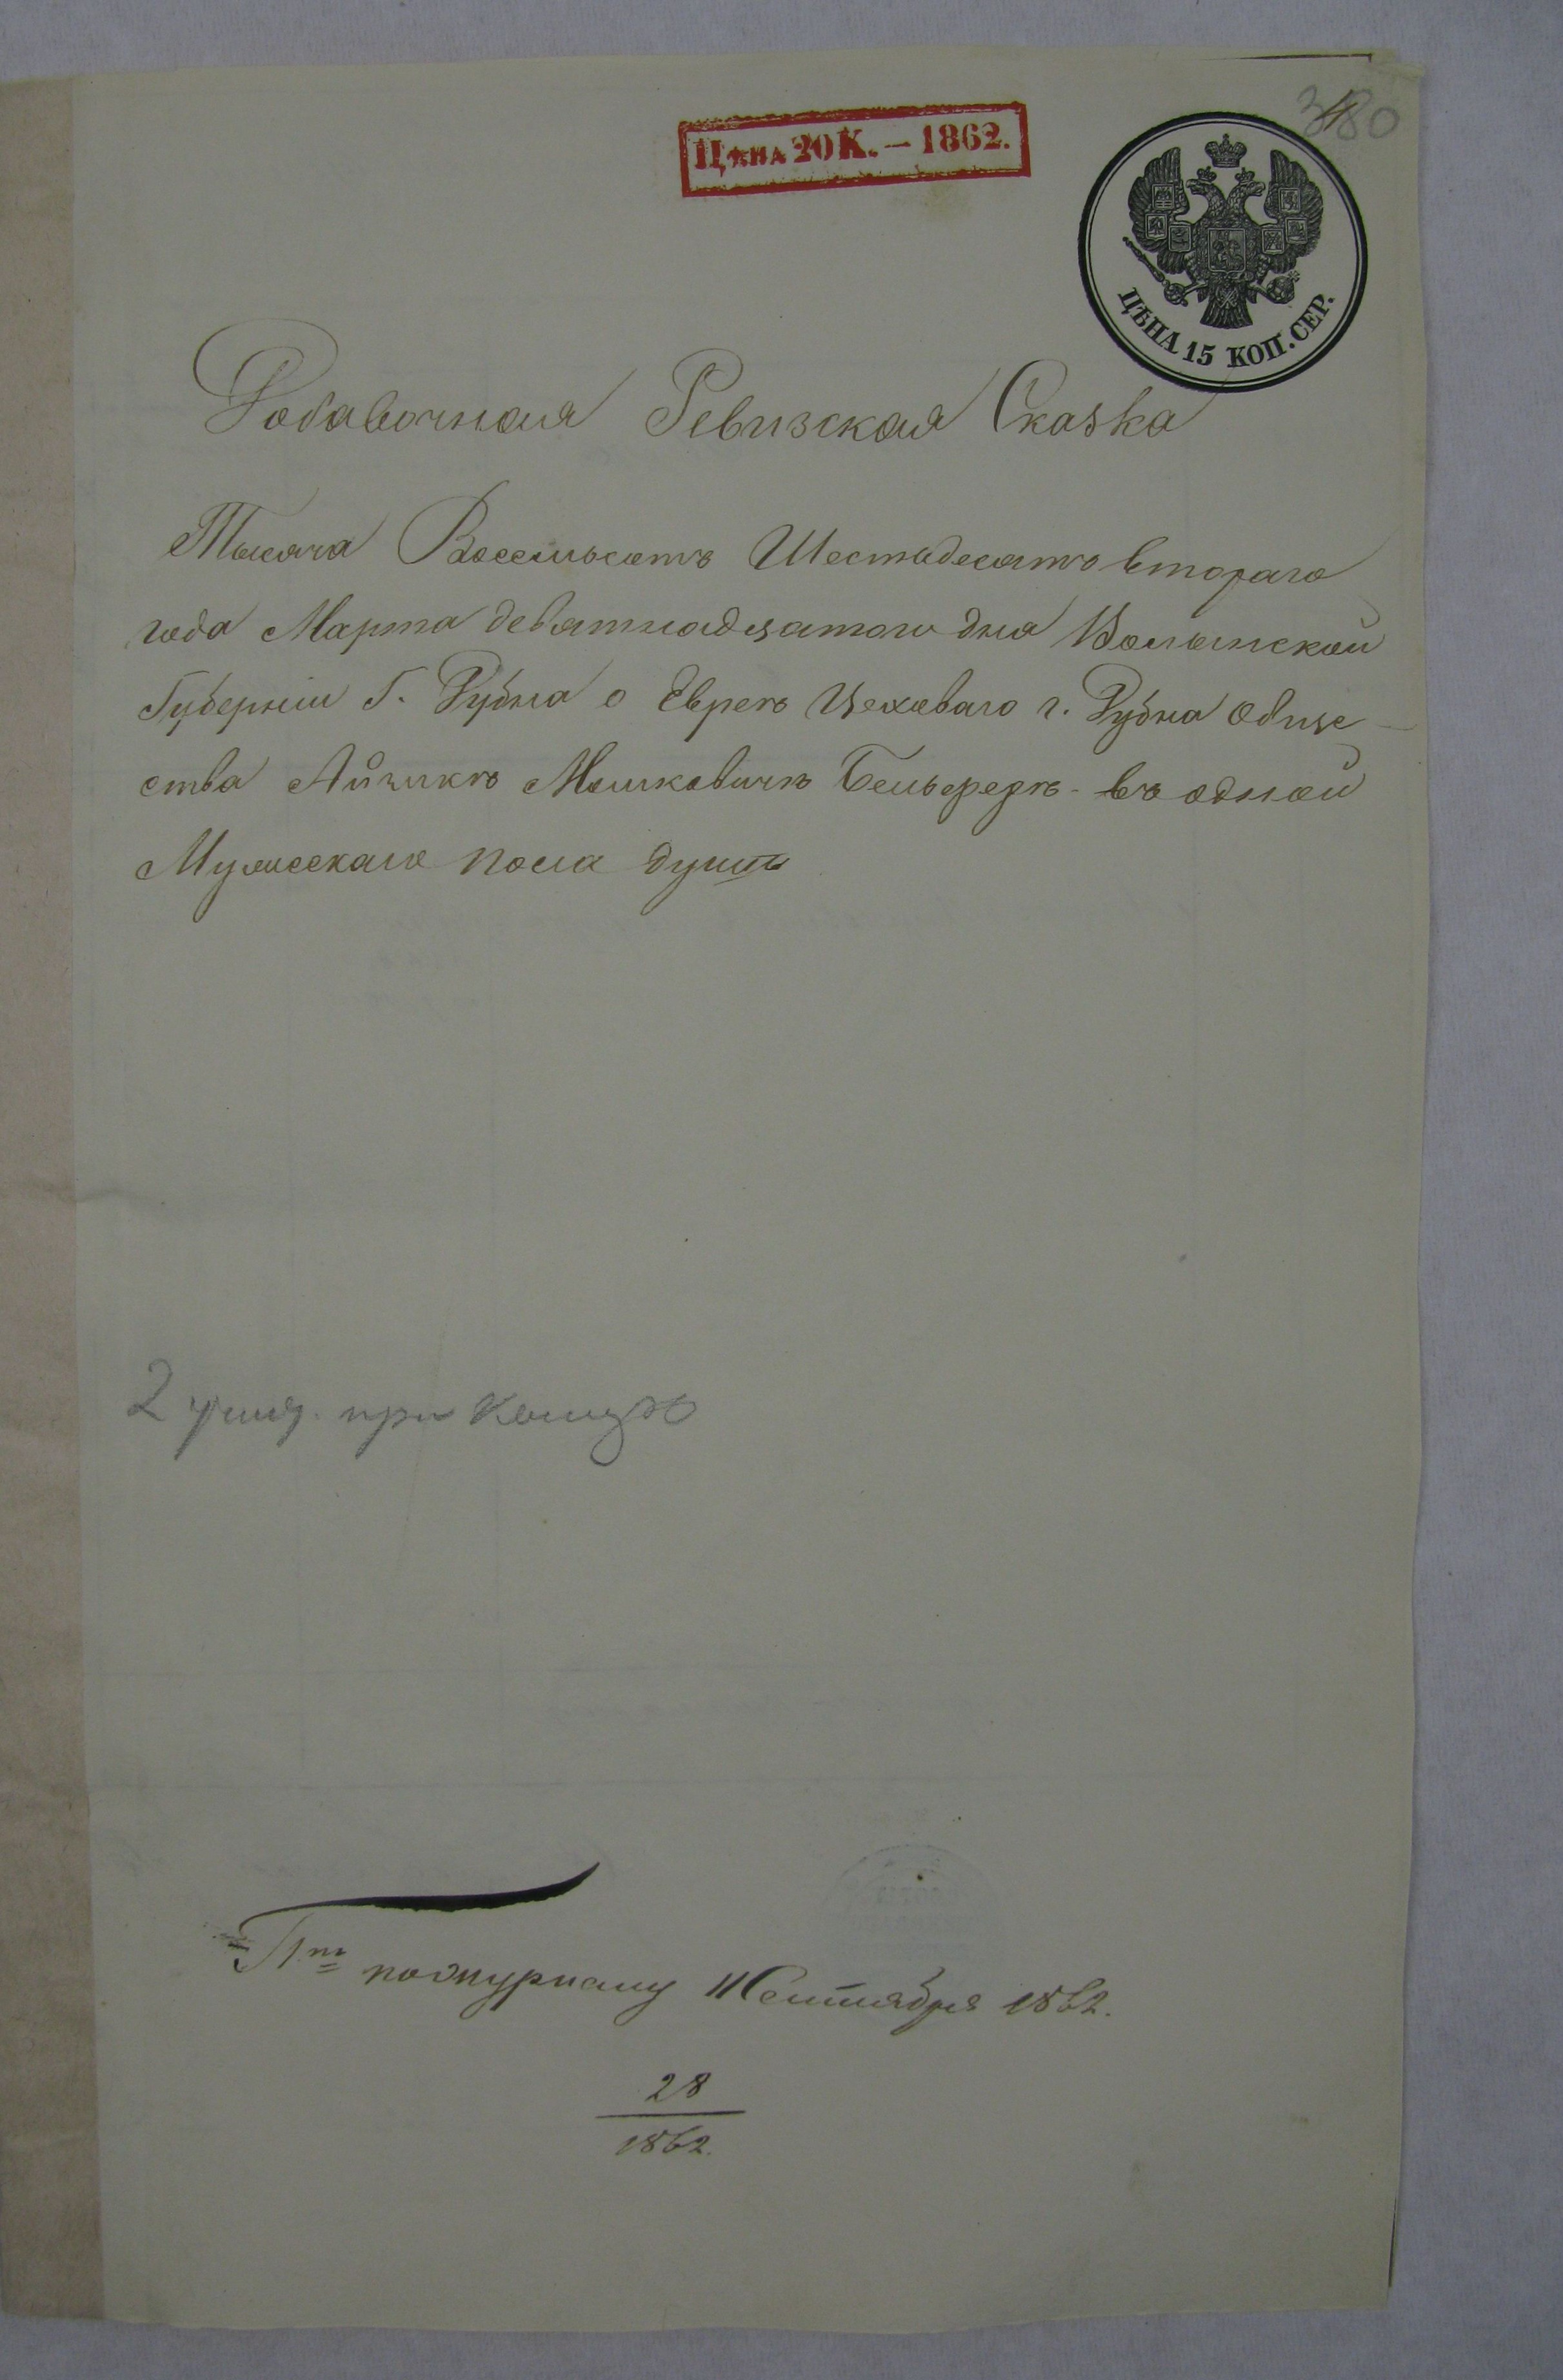 380
Цѣна 20 К. — 1862.
ЦѢНА 15 КОП. СЕР.
Добавочная Ревизская Сказка
Тысяча Восемьсотъ Шестьдесятъ втораго
года Марта девятнадцатого дня Волынской
Губерніи Г. Дубна о Евреѣ Цеховаго г. Дубна обще-
ства Айзикѣ Мошковичѣ Бельферѣ - въ одной
Мужескаго пола душѣ
2 при концѣ
по журналу 11 Сентября 1862.
28
1862.